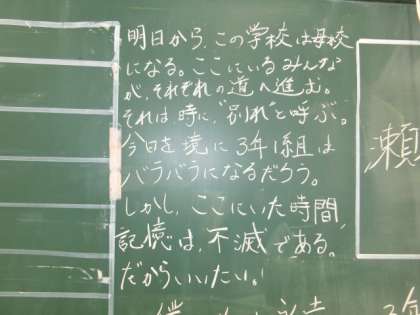 明日から、この学校は母校
になる。ここにいるみんな
が、それぞれの道へ進む。
それは、時に、"別れ"と呼ぶ。
今日を境に3年1組は
バラバラになるだろう。
しかし、ここにいた時間、
記憶は、不滅である。
だからいいたい。!
瀬